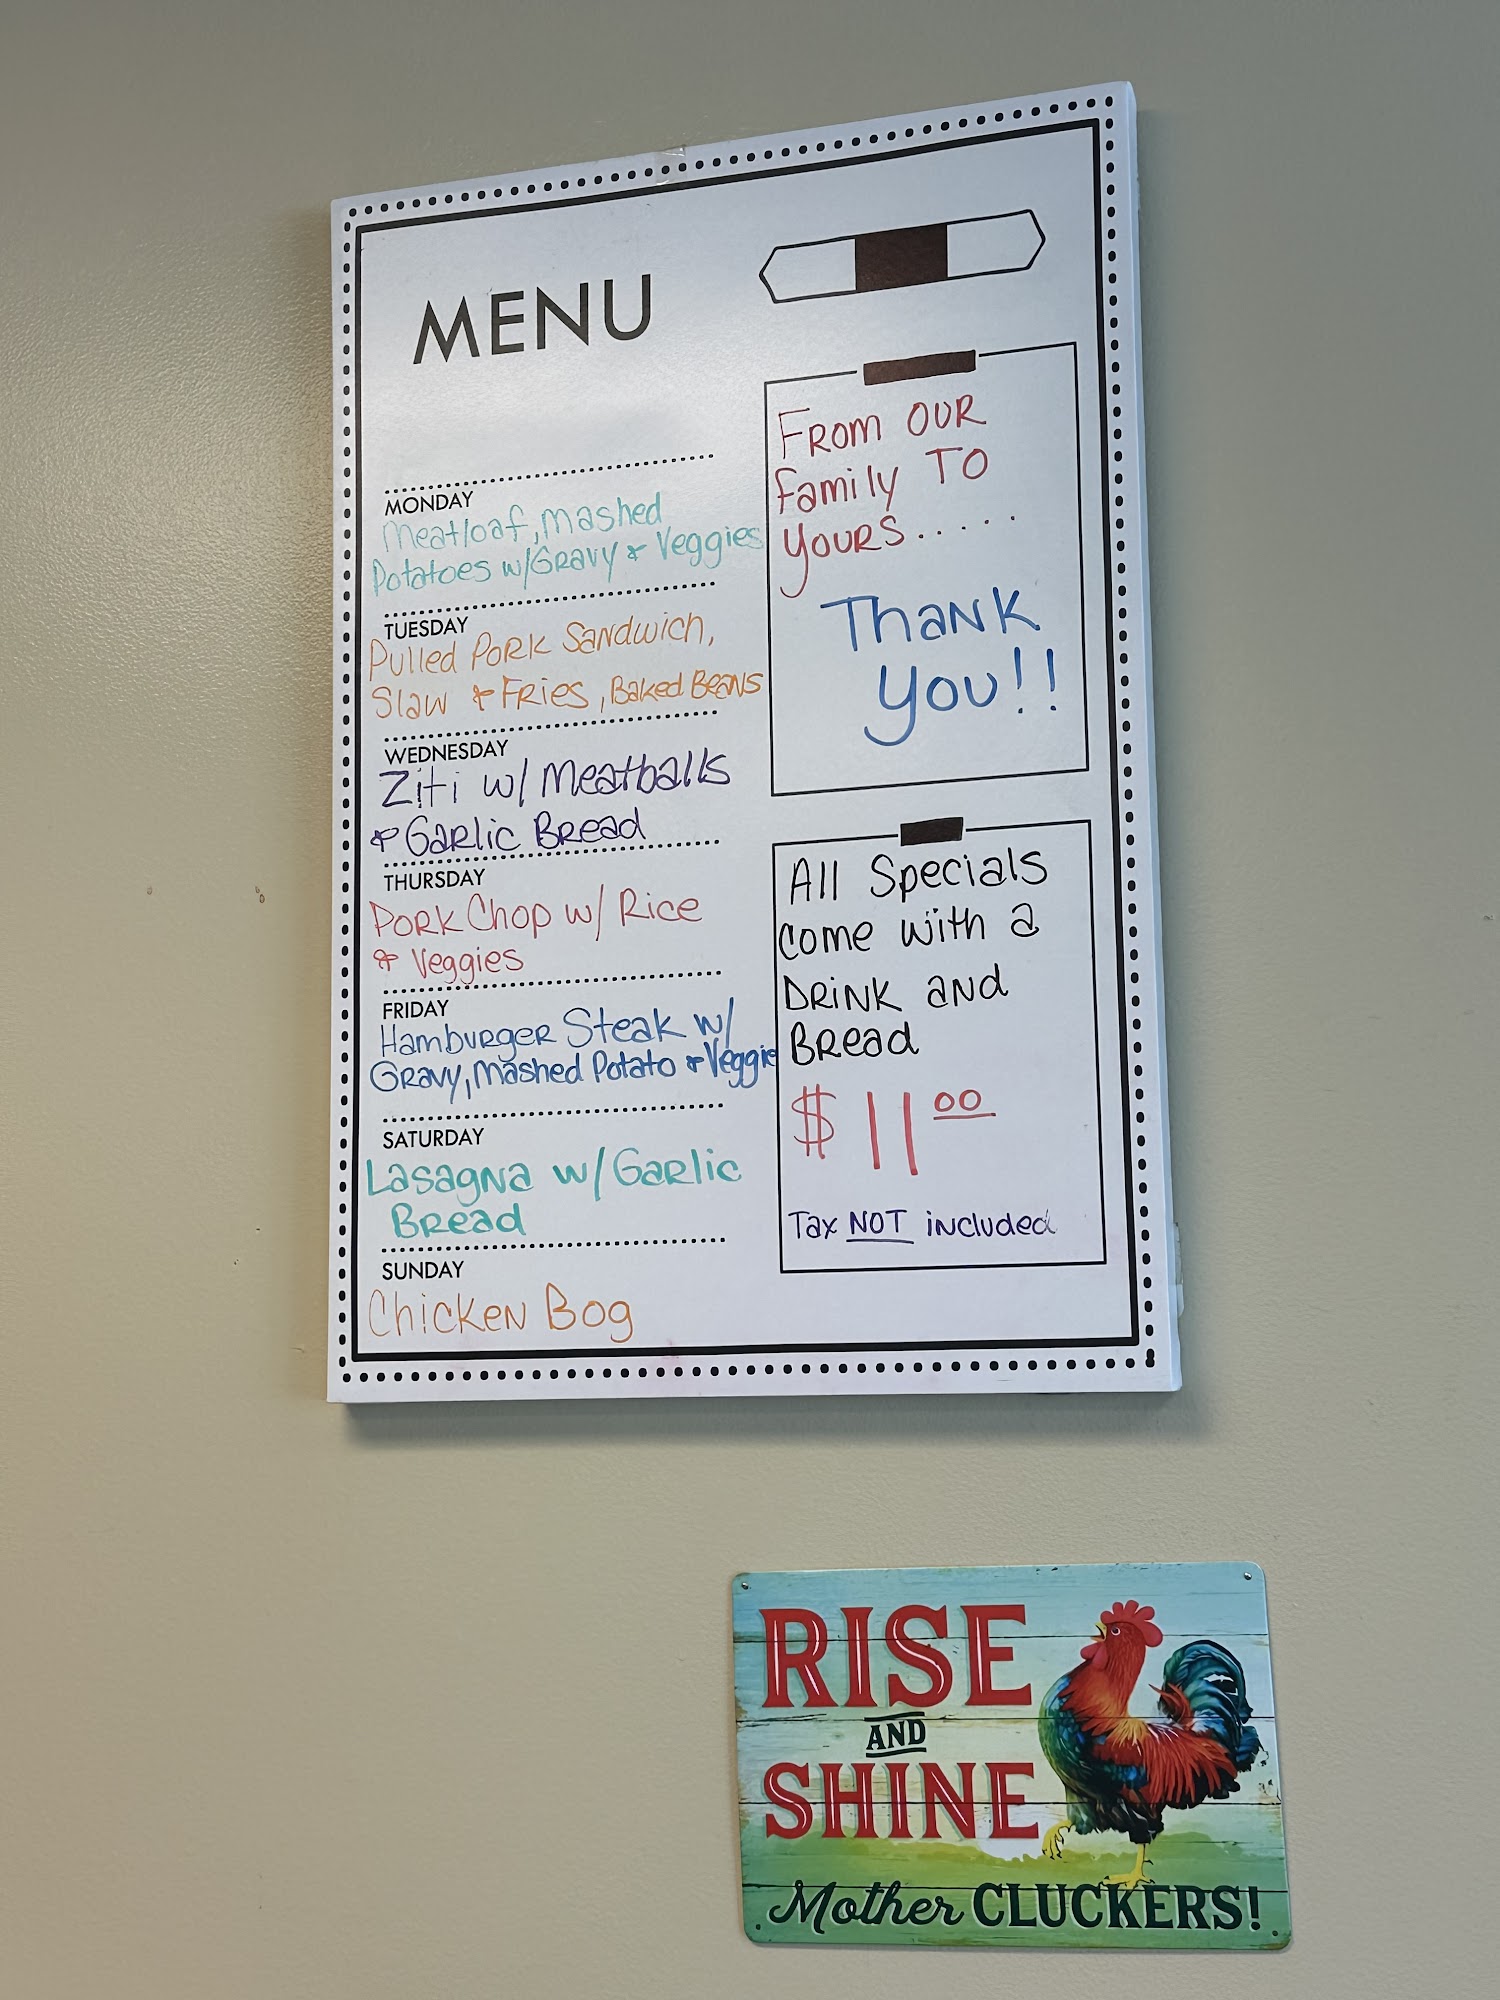 MENU
MONDAY
Meatloaf, Mashed
Potatoes w/Gravy & Veggies
TUESDAY
Pulled Pork Sandwich,
Slaw & Fries, Baked Beans
WEDNESDAY
Ziti w/ Meatballs
& Garlic Bread
THURSDAY
Pork Chop w/ Rice
& Veggies
FRIDAY
Hamburger Steak w/
Gravy, Mashed Potato & Veggie
SATURDAY
Lasagna w/ Garlic
Bread
SUNDAY
Chicken Bog
From our
Family To
Yours.....
Thank
You!!
All Specials
come with a
Drink and
Bread
$11.00
Tax NOT included
RISE
AND
SHINE
Mother CLUCKERS!